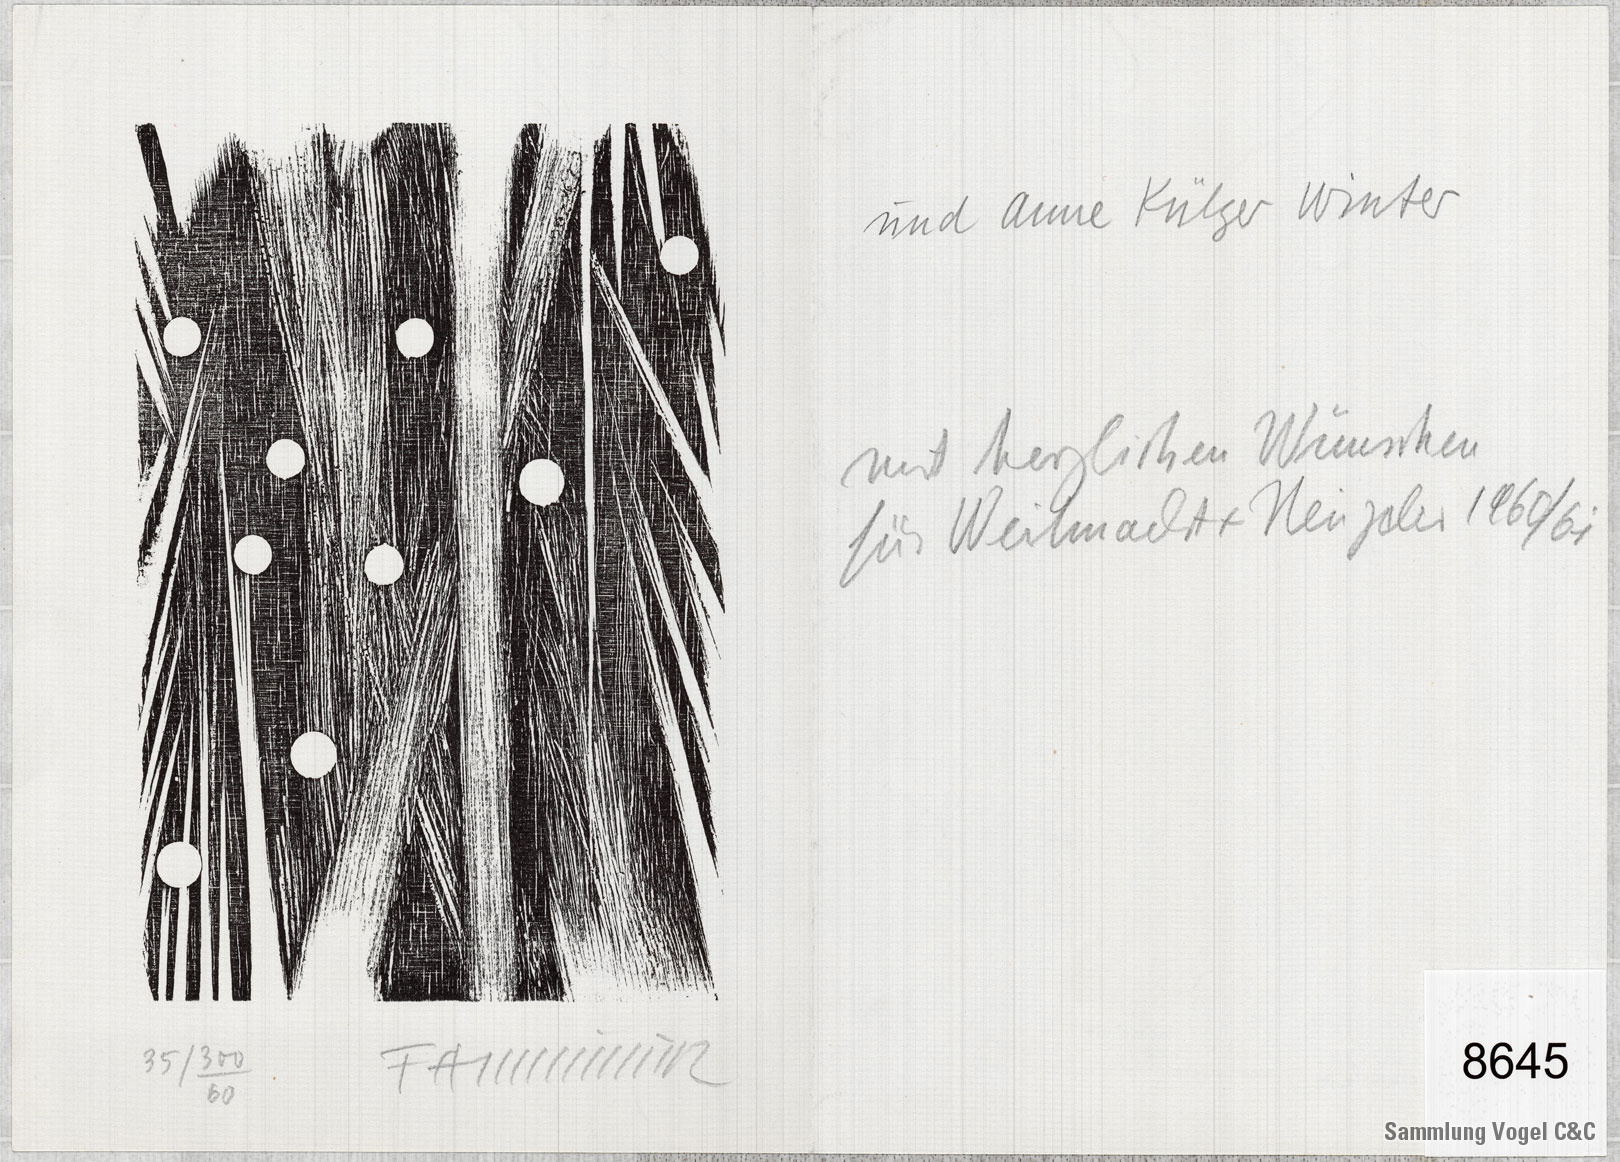 und Anne Külger Winter
mit herzlichen Wünschen
für Weihnacht + Neujahr 1960/61
35/300
60
8645
Sammlung Vogel C&C